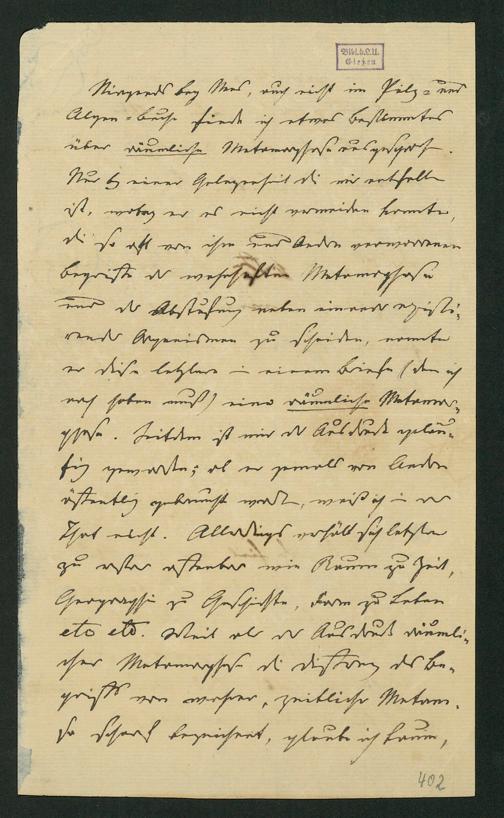 Bibl.d.L.U.
Gießen
Nirgends bey Nees, auch nicht im Pilz- und
Algen-Buche finde ich etwas bestimmtes
über räumliche Metamorphose ausgesprochen.
Nur bey einer Gelegenheit die mir entfallen
ist, wobey er es nicht vermeiden konnte,
die so oft von ihm und Andern verworrenen
Begriffe der wahrhaften Metamorphose
und der Abstufung neben einander existi-
render Organismen zu scheiden, nannte
er diese letztere in einem Briefe (den ich
noch haben muß) eine räumliche Metamor-
phose. Seitdem ist mir der Ausdruck geläu-
fig geworden; ob er jemals von Andern
öffentlich gebraucht ward, weiß ich in der
That nicht. Allerdings verhält sich letztere
zu erster offenbar wie Raum zu Zeit,
Geographie zu Geschichte, Form zu Leben
etc etc. Weil aber der Ausdruck räumli-
cher Metamorphose die Differenz des Be-
griffs von wahrer, zeitlicher Metam.
so scharf bezeichnet, glaube ich kaum,
402